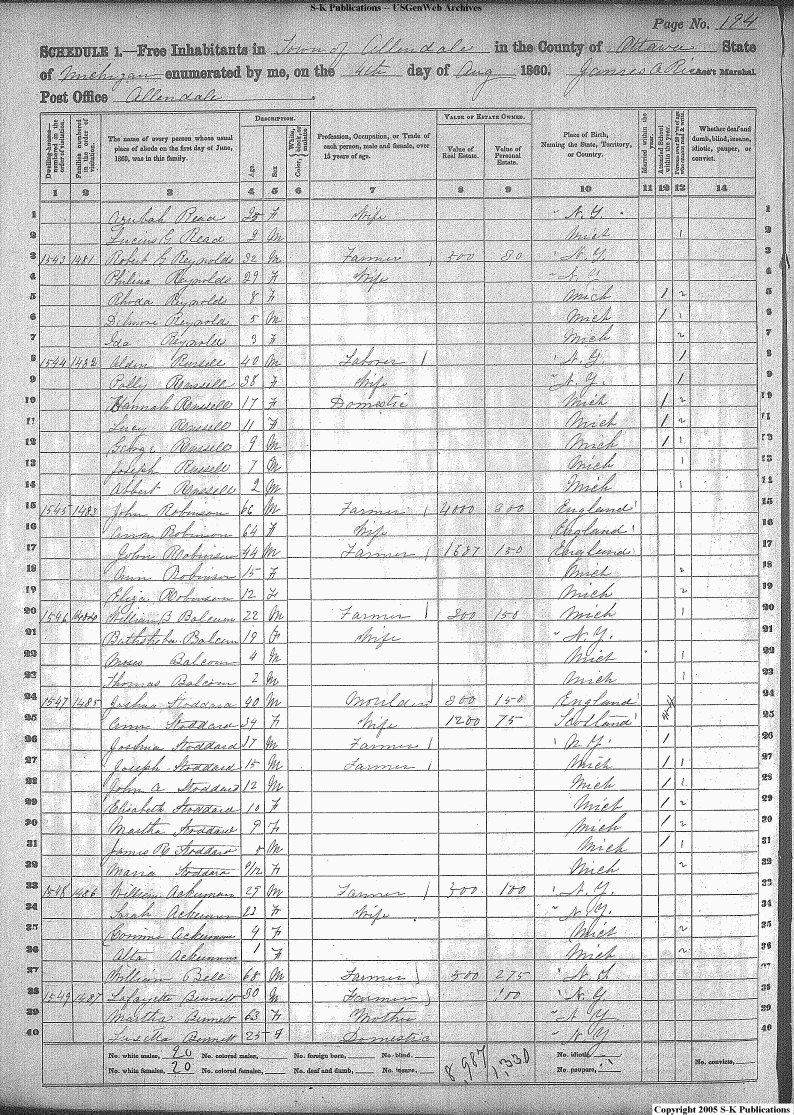 S-K Publications -- USGenWeb Archives
Page No. 194
SCHEDULE 1.—Free Inhabitants in Town of Allendale in the County of Ottawa State
of Michigan enumerated by me, on the 4th day of Aug 1860. James A Ass't Marshal.
Post Office Allendale
Dwelling-houses—numbered in the order of visitation.
Families numbered in the order of visitation.
The name of every person whose usual place of abode on the first day of June, 1860, was in this family.
DESCRIPTION.
Age.
Sex
Color, White, black, or mulatto.
Profession, Occupation, or Trade of each person, male and female, over 15 years of age.
VALUE OF ESTATE OWNED.
Value of Real Estate.
Value of Personal Estate.
Place of Birth, Naming the State, Territory, or Country.
Married within the year.
Attended School within the year.
Persons over 20 y'rs of age who cannot read & write.
Whether deaf and dumb, blind, insane, idiotic, pauper, or convict.
1 2 3 4 5 6 7 8 9 10 11 12 13 14
1 Read 25 F Wife " N.Y. 1
2 Lucius G Read 2 M Mich 1 2
3 1543 1481 Robert G Reynolds 32 M Farmer 500 80 N.Y. 3
4 Philena Reynolds 29 F Wife " N.Y. 4
5 Rhoda Reynolds 8 F Mich 1 2 5
6 Reynolds 5 M Mich 1 1 6
7 Ida Reynolds 3 F Mich 2 7
8 1544 1482 Alden Russell 40 M Laborer 1 N.Y. 1 8
9 Polly Russell 38 F Wife " N.Y. 1 9
10 Hannah Russell 17 F Domestic Mich 1 2 10
11 Lucy Russell 11 F Mich 1 2 11
12 George Russell 9 M Mich 1 1 12
13 Joseph Russell 7 M Mich 1 13
14 Albert Russell 2 M Mich 1 14
15 1545 1483 John Robinson 66 M Farmer 1 4000 800 England 15
16 Robinson 64 F Wife England 16
17 John Robinson 44 M Farmer 1 1687 150 England 17
18 Ann Robinson 15 F Mich 2 18
19 Eliza Robinson 12 F Mich 2 19
20 1546 William B Balcom 22 M Farmer 1 800 150 Mich 1 20
21 Bathsheba Balcom 19 F Wife " N.Y. 21
22 Moses Balcom 4 M Mich 1 22
23 Thomas Balcom 2 M Mich 1 23
24 1547 1485 Joshua Stoddard 40 M Moulder 800 150 England 24
25 Ann Stoddard 39 F Wife 1200 75 Scotland 25
26 Joshua Stoddard 17 M Farmer 1 N.Y. 1 26
27 Joseph Stoddard 15 M Farmer 1 Mich 1 1 27
28 John A Stoddard 12 M Mich 1 1 28
29 Elisabeth Stoddard 10 F Mich 1 2 29
30 Martha Stoddard 9 F Mich 1 2 30
31 James R Stoddard M Mich 1 1 31
32 Maria Stoddard 9/12 F Mich 2 32
33 1548 1486 William Ackerman 29 M Farmer 1 500 100 N.Y. 33
34 Sarah Ackerman 23 F Wife " N.Y. 34
35 Corinne Ackerman 4 F Mich 2 35
36 Alta Ackerman 1 F Mich 2 36
37 William Bell 68 M Farmer 500 275 N.Y. 37
38 1549 1487 Lafayette Bennett 30 M Farmer 100 N.Y. 38
39 Martha Bennett 63 F Mother " N.Y. 39
40 Bennett 25 F Domestic " N.Y. 40
No. white males, 20 No. colored males, No. foreign born, No. blind. 8,987 1,330 No. idiotic, No. convicts,
No. white females, 20 No. colored females, No. deaf and dumb, No. insane, No. paupers,
Copyright 2005 S-K Publications